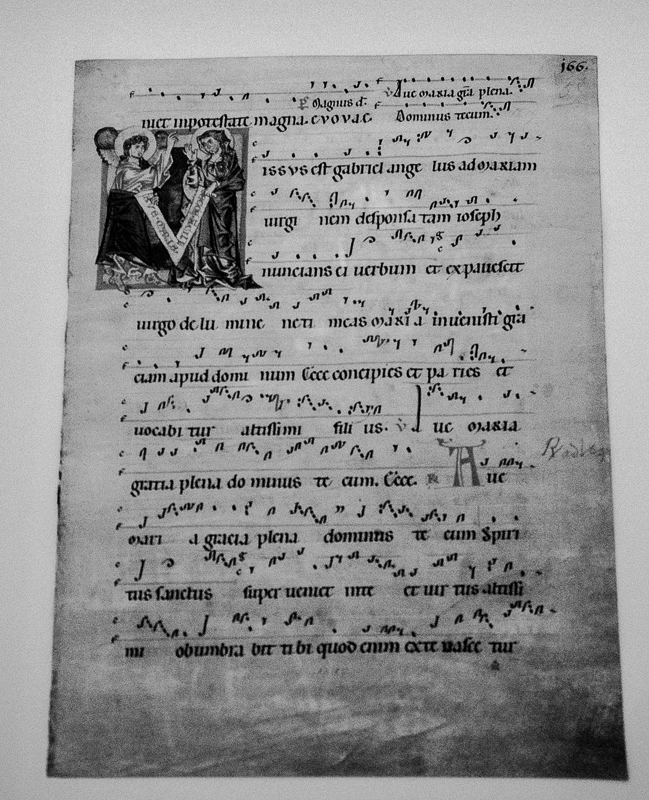 166.
℣ Aue maria gr̄a plena.
℟ Magnus d̄.
niet inpotestate magna. e v o v a e. Dominus tecum.
issus est gabriel ange lus ad mariam
uirgi nem desponsa tam ioseph
nuncians ei uerbum et expauescit
uirgo de lu mine ne ti meas mari a inuenisti gr̄a
ciam apud domi num Ecce concipies et pa ries et
uocabi tur altissimi fili us. ℣ A ue maria
gratia plena do minus te cum. Ecce. ℟ A ue
mari a gracia plena dominus te cum Spiri
tus sanctus super ueniet inte et uir tus altissi
mi obumbra bit ti bi quod enim exte nasce tur